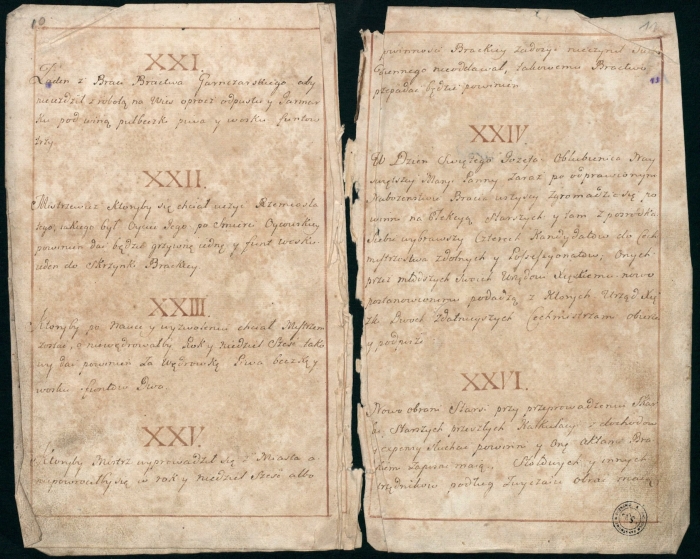 10
XXI.
Żaden z Braci Bractwa Garncarskiego aby
nieieździł z robotą na Wieś oprocz odpustu y Jarmar
ku pod winą pułbeczki piwa y wosku funtow
trzy.
XXII.
ktoryby się chciał uczyc Rzemiosła
iakiego był Oyciec Jego po Smierci Oycowskiey
powinien dac będzie grzywnę iedną y funt wosku
ieden do Skrzynki Brackiey
XXIII.
Ktoryby po Nauce y wyzwoleniu chciał Mistrzem
zostac, a niewędrowałby Rok y niedziel Szesc tako
wy dac powinien za Wędrowkę Piwa beczkę y
wosku funtow Dwa.
XXV.
Ktoryby Mistrz wyprowadził się z Miasta a
niepowrociłby się w rok y niedziel Szesc albo
powinnosci Brackiey zadosyc nieczynił
nieoddawał, takowemu Bractwo
przepadac będzie powinno
XXIV.
W Dzien Swiętego Jozefa Oblubienca Nay
swiętszy Maryi Panny zaraz po odprawionym
Nabozenstwie Bracia wszyscy zgromadzic się po
winni na Elekcyą Starszych y tam z posrodka
Siebie wybrawszy Czterech Kandydatow do Cech
mistrzostwa zdolnych y Possessyonatow, Onych
przez młodszych Swoich Urzędowi Mieyskiemu nowo
postanowionemu podadzą z Ktorych Urząd Miey
ski Dwoch Zdatnieyszych Cechmistrzami obierze
y
XXVI.
Nowo obrani Starsi przy przeprowadzeniu Skar
bu Starszych przeszłych Kalkulacyi z dochodow
y expensy słuchac powinni y Onę Aktami Bra
ckiemi zapisac maią. Stołowych y innych
urzędnikow podług Zwyczaiu obrac maią